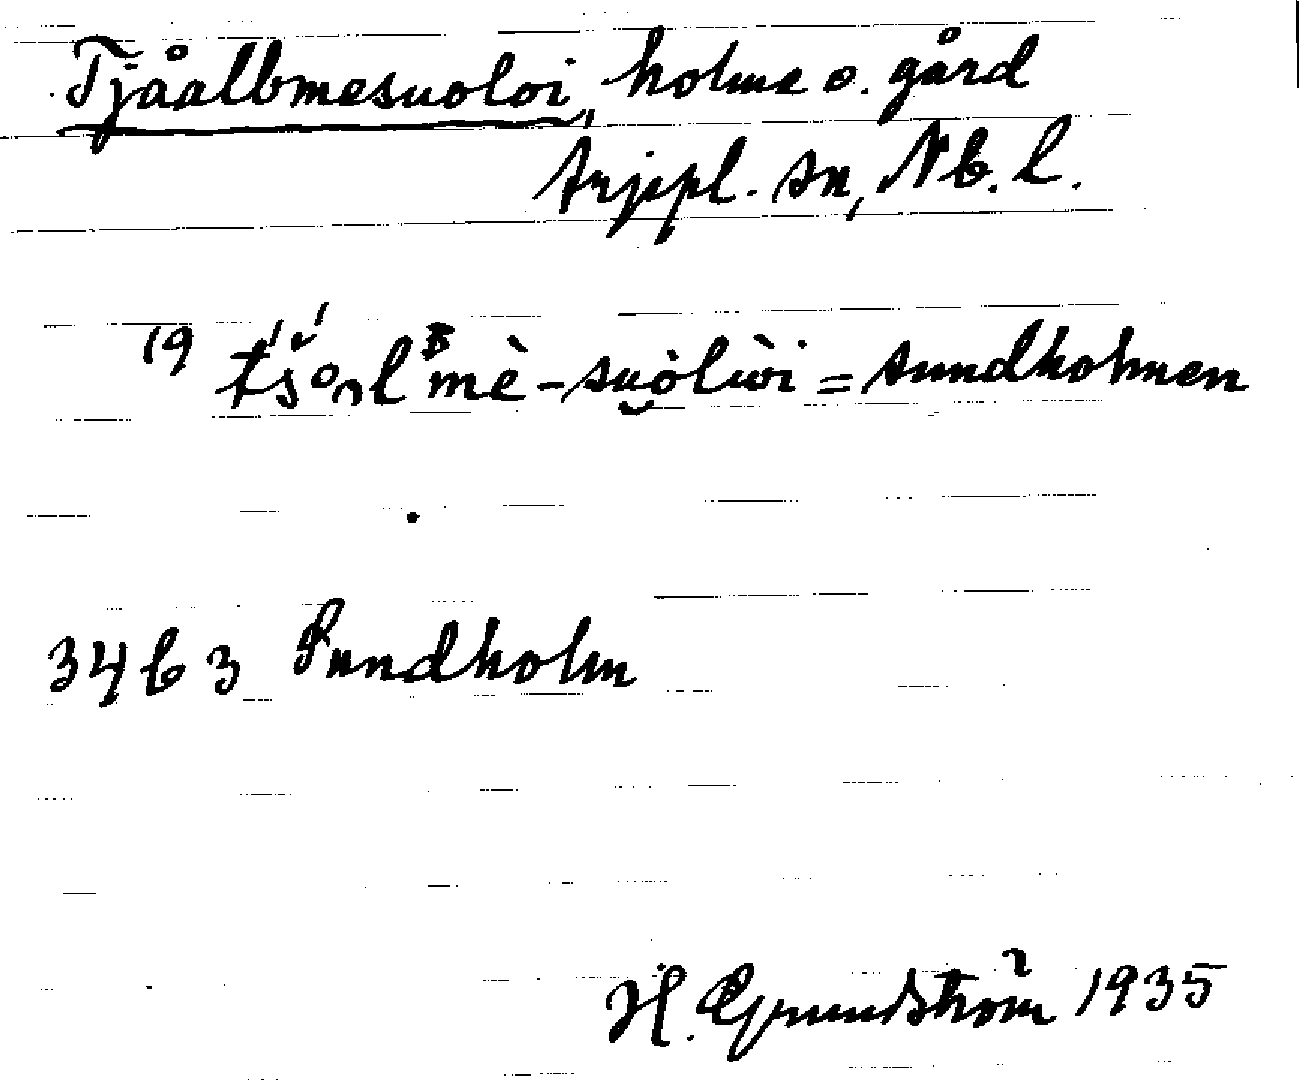 Tjåalbmesuoloi, holme o. gård
Arjepl. sn, Nb. l.
19 tšo̊ₐlᴮmè-su̯òlẁi = sundholmen
34 b 3 Sundholm
H. Grundström 1935